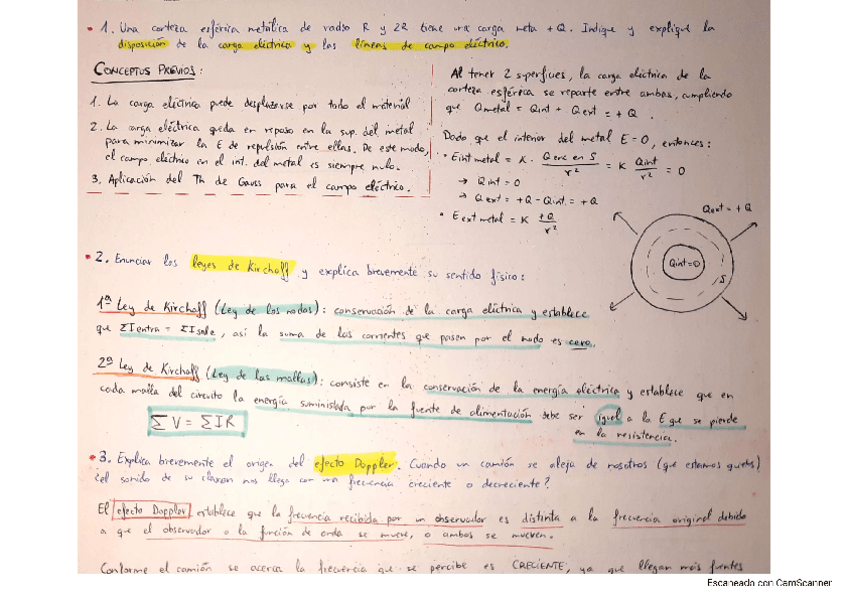 • 1. Una corteza esférica metálica de radio R y 2R tiene una carga neta +Q. Indique y explique la
disposición de la carga eléctrica y las líneas de campo eléctrico.
CONCEPTOS PREVIOS:
1. La carga eléctrica puede desplazarse por todo el material
2. La carga eléctrica queda en reposo en la sup. del metal
para minimizar la E de repulsión entre ellas. De este modo,
el campo eléctrico en el int. del metal es siempre nulo.
3. Aplicación del Th de Gauss para el campo eléctrico.
Al tener 2 superficies, la carga eléctrica de la
corteza esférica se reparte entre ambas, cumpliendo
que Qmetal = Qint + Qext = + Q.
Dado que el interior del metal E=0, entonces:
• Eint metal = K · Q enc en S / r² = K Qint / r² = 0
→ Qint = 0
→ Qext = +Q - Qint = +Q
• E ext metal = K +Q / r²
Qext = +Q
Qint=0
S
• 2. Enunciar las leyes de Kirchoff y explica brevemente su sentido físico:
1ª Ley de Kirchoff (Ley de los nodos): conservación de la carga eléctrica y establece
que ΣIentra = ΣIsale, así la suma de las corrientes que pasen por el nudo es cero.
2ª Ley de Kirchoff (Ley de las mallas): consiste en la conservación de la energía eléctrica y establece que en
cada malla del circuito la energía suministada por la fuente de alimentación debe ser igual a la E que se pierde
en la resistencia.
ΣV = ΣIR
• 3. Explica brevemente el origen del efecto Doppler. Cuando un camión se aleja de nosotros (que estamos quietos)
¿el sonido de su claxon nos llega con una frecuencia creciente o decreciente?
El efecto Doppler establece que la frecuencia recibida por un observador es distinta a la frecuencia original debido
a que el observador o la función de onda se mueve, o ambos se mueven.
Conforme el camión se acerca la frecuencia que se percibe es CRECIENTE, ya que llegan más fuentes
Escaneado con CamScanner